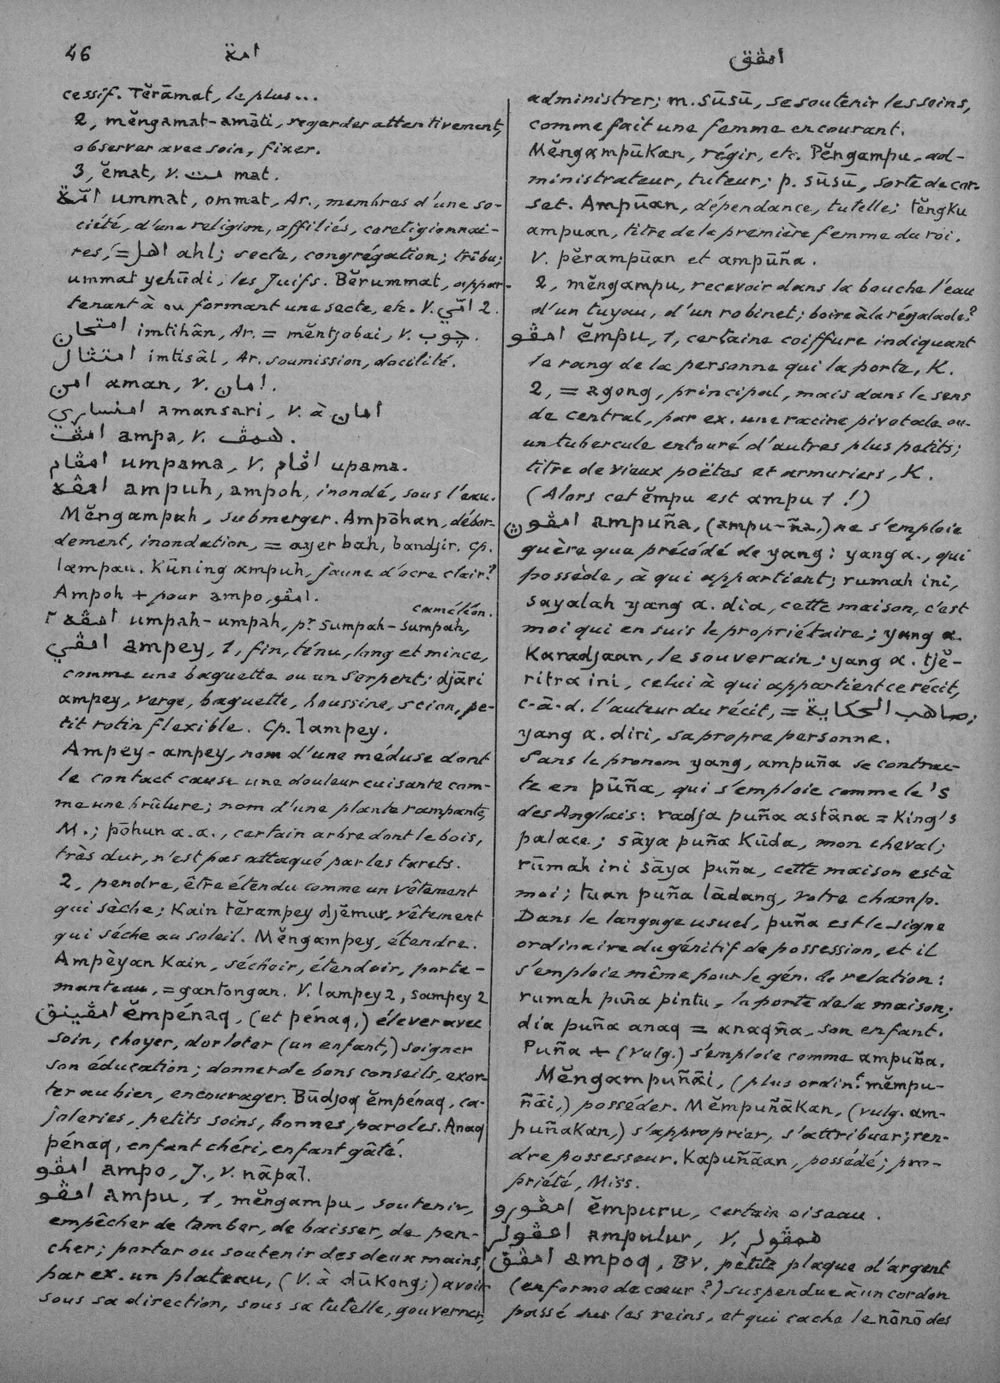 46
امة
امڤق
cessif. Tĕrāmat, le plus...
2, mĕngamat-amāti, regarder attentivement,
observer avec soin, fixer.
3, ĕmat, V. مت mat.
امّة ummat, ommat, Ar., membres d'une so-
ciété, d'une religion, affiliés, coreligionnai-
res, (= اهل ahl; secte, congrégation; tribu;
ummat yehūdi, les Juifs. Bĕrummat, appar-
tenant à ou formant une secte, etc. V. امّي 2.
امتحان imtihân, Ar. = mĕntjobai, V. چوب.
امتثال imtisâl, Ar. soumission, docilité.
امن aman, V. امان.
امنساري amansari, V. à امان
امڤ ampa, V. همڤ.
امڤام umpama, V. اڤام upama.
امڤه ampuh, ampoh, inondé, sous l'eau.
Mĕngampuh, submerger. Ampōhan, débor-
dement, inondation, = ayer bah, bandjir. Cp.
lampau. Kūning ampuh, jaune d'ocre clair?
Ampoh + pour ampo, امڤو.
امڤه ٢ umpah-umpah, pr sumpah-sumpah, caméléon.
امڤي ampey, 1, fin, ténu, long et mince,
comme une baguette ou un serpent; djāri
ampey, verge, baguette, houssine, scion, pe-
tit rotin flexible. Cp. lampey.
Ampey-ampey, nom d'une méduse dont
le contact cause une douleur cuisante com-
me une brûlure; nom d'une plante rampante,
M.; pōhun a.a., certain arbre dont le bois,
très dur, n'est pas attaqué par les tarets.
2, pendre, être étendu comme un vêtement
qui sèche; Kain tĕrampey djĕmur, vêtement
qui sèche au soleil. Mĕngampey, étendre.
Ampēyan Kain, séchoir, étendoir, porte-
manteau, = gantongan. V. lampey 2, sampey 2
امڤينق ĕmpénaq, (et pénaq,) élever avec
soin, choyer, dorloter (un enfant,) soigner
son éducation; donner de bons conseils, exor-
ter au bien, encourager. Būdjoq ĕmpénaq, ca-
joleries, petits soins, bonnes paroles. Anaq
pénaq, enfant chéri, enfant gâté.
امڤو ampo, J., V. nāpal.
امڤو ampu, 1, mĕngampu, soutenir,
empêcher de tomber, de baisser, de pen-
cher; porter ou soutenir des deux mains,
par ex. un plateau, (V. à dūkong;) avoir
sous sa direction, sous sa tutelle, gouverner,
administrer; m. sūsū, se soutenir les seins,
comme fait une femme en courant.
Mĕngampūkan, régir, etc. Pĕngampu, ad-
ministrateur, tuteur; p. sūsū, sorte de cor-
set. Ampūan, dépendance, tutelle; tĕngku
ampuan, titre de la première femme du roi.
V. pĕrampūan et ampūña.
2, mĕngampu, recevoir dans la bouche l'eau
d'un tuyau, d'un robinet; boire à la régalade?
امڤو ĕmpu, 1, certaine coiffure indiquant
le rang de la personne qui la porte, K.
2, = agong, principal, mais dans le sens
de central, par ex. une racine pivotale ou
un tubercule entouré d'autres plus petits;
titre de vieux poëtes et armuriers, K.
(Alors cet ĕmpu est ampu 1 !)
امڤوڽ ampuña, (ampu-ña,) ne s'emploie
guère que précédé de yang: yang a., qui
possède, à qui appartient; rumah ini,
sayalah yang a. dia, cette maison, c'est
moi qui en suis le propriétaire; yang a.
Karadjaan, le souverain; yang a. tjĕ-
ritra ini, celui à qui appartient ce récit,
c-à-d. l'auteur du récit, = صاهب الحكاية;
yang a. diri, sa propre personne.
Sans le pronom yang, ampuña se contrac-
te en pūña, qui s'emploie comme le 's
des Anglais: radja puña astāna = King's
palace; sāya puña Kūda, mon cheval;
rūmah ini sāya puña, cette maison est à
moi; tuan puña lādang, votre champ.
Dans le langage usuel, puña est le signe
ordinaire du génitif de possession, et il
s'emploie même pour le gén. de relation:
rumah puña pintu, la porte de la maison;
dia puña anaq = anaqña, son enfant.
Puña + (vulg.) s'emploie comme ampuña.
Mĕngampuñāi, (plus ordint mĕmpu-
ñāi,) posséder. Mĕmpuñākan, (vulg. am-
puñakan,) s'approprier, s'attribuer; ren-
dre possesseur. Kapuñāan, possédé; pro-
priété, Miss.
امڤورو ĕmpuru, certain oiseau.
امڤولر ampulur, V. همڤولر
امڤق ampoq, BV. petite plaque d'argent
(en forme de cœur?) suspendue à un cordon
passé sur les reins, et qui cache le nōnō des